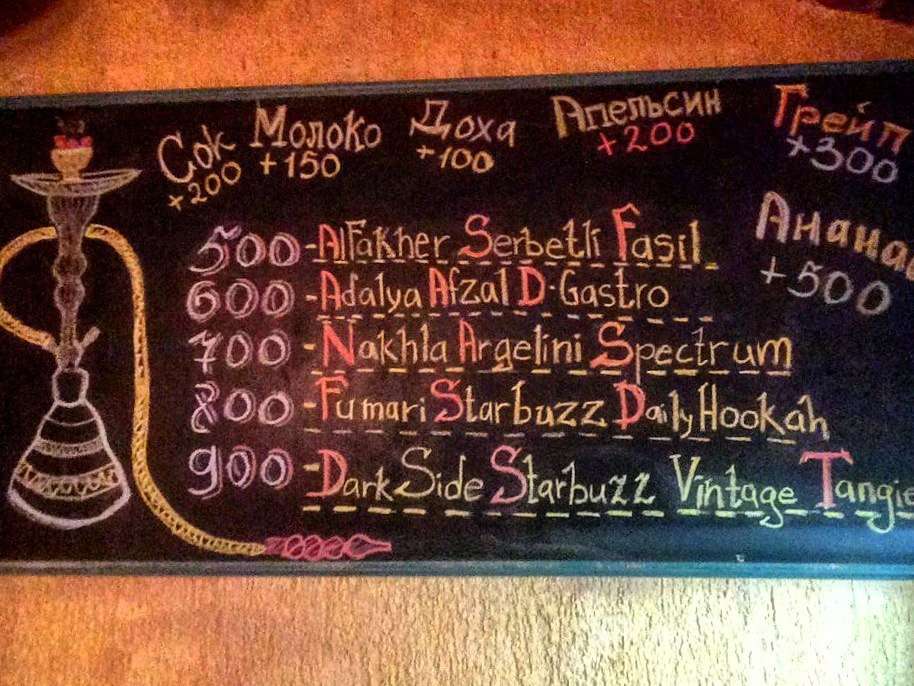 Сок Молоко Доха Апельсин Грейп
+200 +150 +100 +200 +300
500 - AlFakher Serbetli Fasil
Ананас
+500
600 - Adalya Afzal D-Gastro
700 - Nakhla Argelini Spectrum
800 - Fumari Starbuzz DailyHookah
900 - DarkSide Starbuzz Vintage Tangie